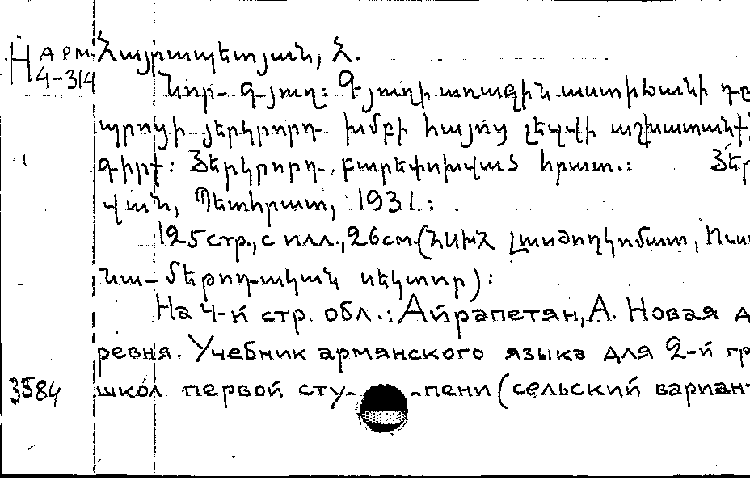 Н арм. Հայրապետյան, Հ.
4-314
Նոր- Գյուղ: Գյուղի առաջին աստիճանի դպ
պրոցի յերկրորդ խմբի հայոց լեզվի աշխատանք
գիրք: Յերկրորդ, բարեփոխված հրատ.: Յեր
վան, Պետհրատ, 1931:
125 стр., с илл., 26 см (ՀՍԽՀ Լուսժողկոմատ, Ուս
նա-մեթոդական սեկտոր):
На 4-й стр. обл.: Айрапетян, А. Новая д
ревня. Учебник армянского языка для 2-й гр
3584 школ первой сту- -пени (сельский вариан